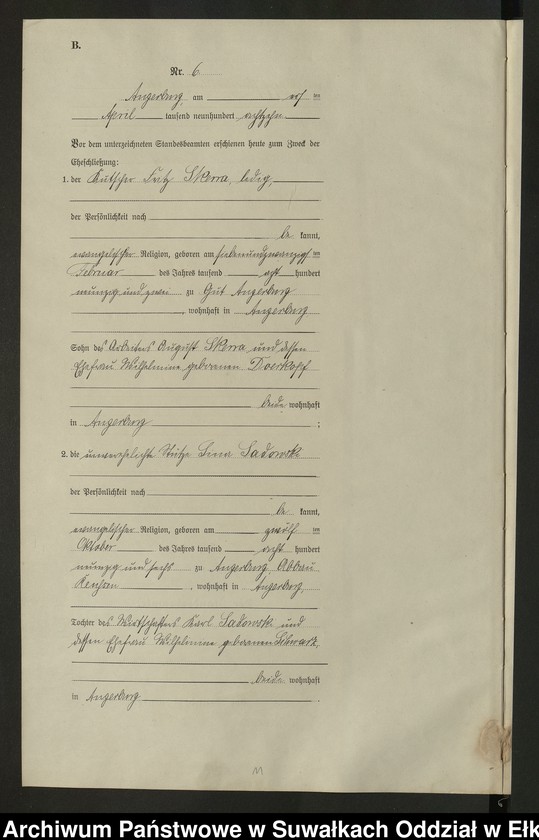 B.
Nr. 6
Angerburg, am ten
April tausend neunhundert achtzehn
Vor dem unterzeichneten Standesbeamten erschienen heute zum Zweck der
Eheschließung:
1. der Kutscher Fritz Skerra, ledig,
der Persönlichkeit nach
be kannt,
evangelischer Religion, geboren am siebenundzwanzigs ten
Februar des Jahres tausend acht hundert
neunzig und zwei zu Gut Angerburg
, wohnhaft in Angerburg
Sohn des Arbeiters August Skerra und dessen
Ehefrau Wilhelmine geborenen Doerkopf
beide wohnhaft
in Angerburg ;
2. die unverehelichte Stütze Lina Sadowski
der Persönlichkeit nach
be kannt,
evangelischer Religion, geboren am zwölf ten
Oktober des Jahres tausend acht hundert
neunzig und sechs zu Angerburg Abbau
, wohnhaft in Angerburg,
Tochter des Wirtschafters Karl Sadowski und
dessen Ehefrau Wilhelmine geborenen Schwarz,
beide wohnhaft
in Angerburg
Archiwum Państwowe w Suwałkach Oddział w Ełk